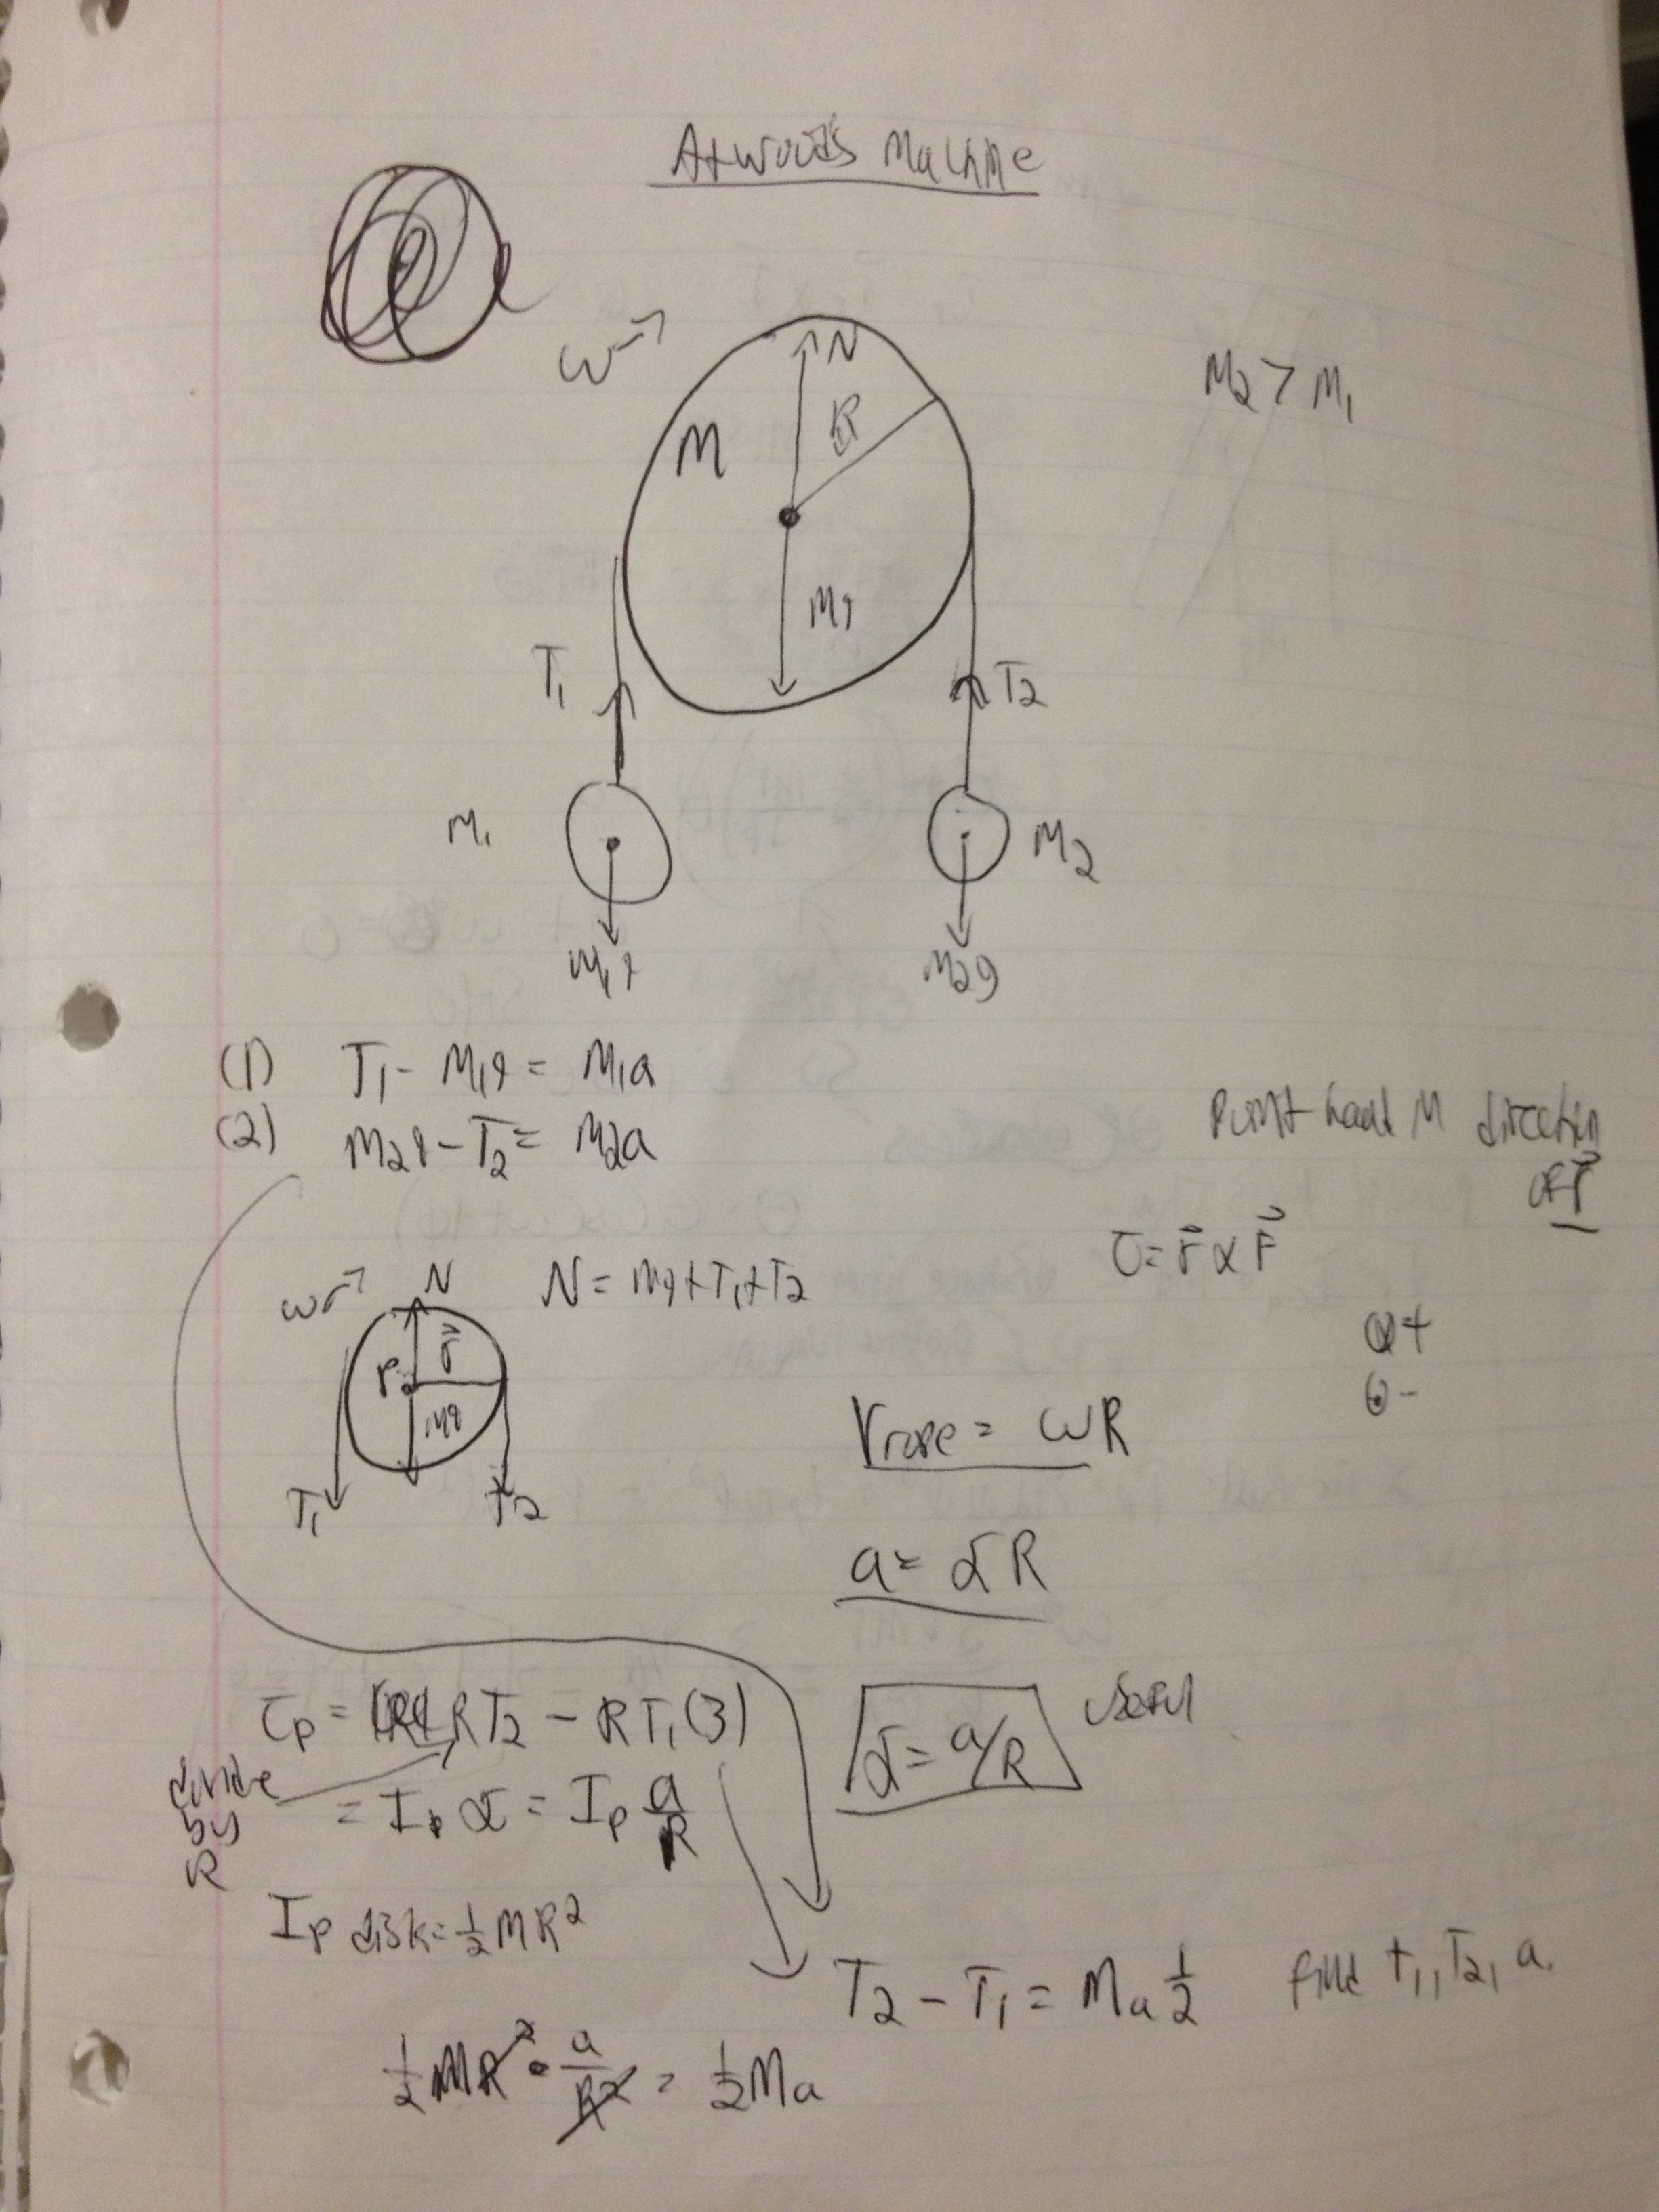 Atwood's Machine
ω→
N
R
M
M2 > M1
Mg
T1
T2
M1
M2
M1g
M2g
(1) T1 - M1g = M1a
(2) M2g - T2 = M2a
Point hand in direction
of r⃗
τ = r⃗ x F⃗
ω→
N
N = Mg + T1 + T2
⊗ +
⊙ -
P
r⃗
Mg
T1
T2
Vrope = ωR
a = αR
τP = RT2 - RT1 (3)
α = a/R
useful
divide
by
R
= IP α = IP a/R
IP disk = 1/2 MR²
T2 - T1 = Ma 1/2
find T1, T2, a.
1/2 MR² • a/R² = 1/2 Ma